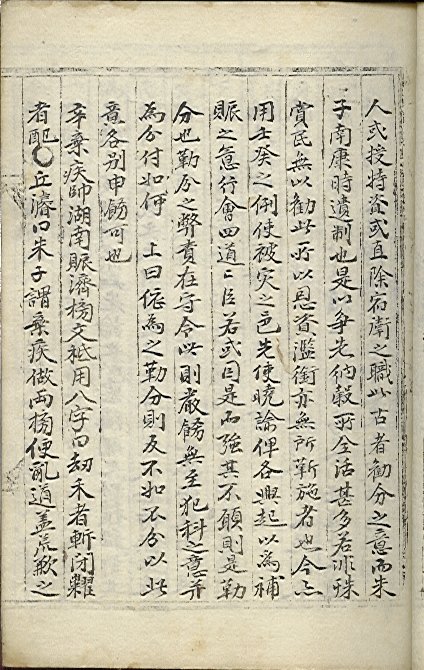 人或授特資或直除宿衛之職此古者勸分之意而朱
子南康時遺制也是以爭先納穀所全活甚多若非殊
賞民無以勸此所以恩資濫銜亦無所靳施者也今亦
用士癸之例使被灾之邑先使曉諭俾各興起以爲補
賑之意行會四道道臣若或因是而强其不願則是勒
分也勒分之弊責在守令此則嚴飭無至犯科之意幷
爲分付如何　上曰依爲之勒分則反不如不分以此
意各別申飭可也
辛棄疾帥湖南賑濟榜文祗用八字曰刼禾者斬閉糶
者配〇丘濬曰朱子謂棄疾做兩榜便亂道盖荒歉之